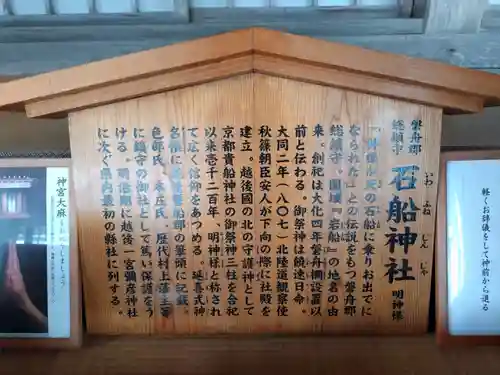 磐舟郡
総鎮守
石船神社
いわ ふね じん じゃ
明神様
『神様が天の石船に乗りお出でに
なられた』との伝説をもつ磐舟郡
総鎮守。國領『岩船』の地名の由
来。創祀は大化四年磐舟柵設置以
前と伝わる。御祭神は饒速日命。
大同二年(八〇七)北陸道観察使
秋篠朝臣安人が下向の際に社殿を
建立。越後國の北の守護神として
京都貴船神社の御祭神三柱を合祀
以来壱千二百年、明神様と称され
て広く信仰をあつめる。延喜式神
名帳に磐舟郡の筆頭に記載。
色部氏、本庄氏、歴代村上藩主等
に鎮守の御社として篤い保護をう
ける。明治期に越後一宮彌彦神社
に次ぐ県内最初の縣社に列する。
神宮大麻
軽くお辞儀をして神前から退く